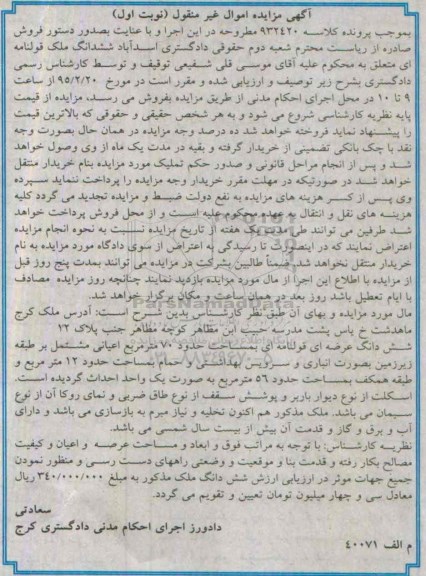 آگهی مزایده اموال غیر منقول (نوبت اول)
بموجب پرونده کلاسه ۹۳۲۴۲۰ مطروحه در این اجرا و با عنایت بصدور دستور فروش
صادره از ریاست محترم شعبه دوم حقوقی دادگستری اسدآباد ششدانگ ملک قولنامه
ای متعلق به محکوم علیه آقای موسی قلی شفیعی توقیف و توسط کارشناس رسمی
دادگستری بشرح زیر توصیف و ارزیابی شده و مقرر است در مورخ ۹۵/۲/۲۰ از ساعت
۹ تا ۱۰ در محل اجرای احکام مدنی از طریق مزایده بفروش می رسد، مزایده از قیمت
پایه نظریه کارشناسی شروع می شود و به هر شخص حقیقی و حقوقی که بالاترین قیمت
را پیشنهاد نماید فروخته خواهد شد ده درصد وجه مزایده در همان حال بصورت وجه
نقد یا چک بانکی تضمینی از خریدار گرفته و بقیه در مدت یک ماه از وی وصول خواهد
شد و پس از انجام مراحل قانونی و صدور حکم تملیک مورد مزایده بنام خریدار منتقل
خواهد شد در صورتیکه در مهلت مقرر خریدار وجه مزایده را پرداخت ننماید سپرده
وی پس از کسر هزینه های مزایده به نفع دولت ضبط و مزایده تجدید می گردد کلیه
هزینه های نقل و انتقال به عهده محکوم علیه است و از محل فروش پرداخت خواهد
شد طرفین می توانند طی مدت یک هفته از تاریخ مزایده نسبت به نحوه انجام مزایده
اعتراض نمایند که در اینصورت تا رسیدگی به اعتراض از سوی دادگاه مورد مزایده به نام
خریدار منتقل نخواهد شد. ضمناً طالبین بشرکت در مزایده می توانند بمدت پنج روز قبل
از مزایده با اطلاع این اجرا از مال مورد مزایده بازدید نمایند چنانچه روز مزایده مصادف
با ایام تعطیل باشد روز بعد در همان ساعت و مکان برگزار خواهد شد.
مال مورد مزایده و بهای آن طبق نظر کارشناس بدین شرح است: آدرس ملک کرج
ماهدشت خ یاس پشت مدرسه حبیب ابن مظاهر کوچه مظاهر جنب پلاک ۱۲
شش دانگ عرصه ای قولنامه ای بمساحت حدود ۷۰ مترمربع اعیانی مشتمل بر طبقه
زیرزمین بصورت انباری و سرویس بهداشتی و حمام بمساحت حدود ۱۲ متر مربع و
طبقه همکف بمساحت حدود ۵۶ مترمربع به صورت یک واحد احداث گردیده است.
اسکلت از نوع دیوار باربر و پوشش سقف از نوع طاق ضربی و نمای روکا آن از نوع
سیمان می باشد. ملک مذکور هم اکنون تخلیه و نیاز مبرم به بازسازی می باشد و دارای
آب و برق و گاز و قدمت آن بیش از بیست سال شمسی می باشد.
نظریه کارشناس: با توجه به مراتب فوق و ابعاد و مساحت عرصه و اعیان و کیفیت
مصالح بکار رفته و قدمت بنا و موقعیت و وضعتی راههای دست رسی و منظور نمودن
جمیع جهات موثر در ارزیابی ارزش شش دانگ ملک مذکور به مبلغ ۳۴۰/۰۰۰/۰۰۰ ریال
معادل سی و چهار میلیون تومان تعیین و تقویم می گردد.
سعادتی
دادورز اجرای احکام مدنی دادگستری کرج
م الف ۴۰۰۷۱